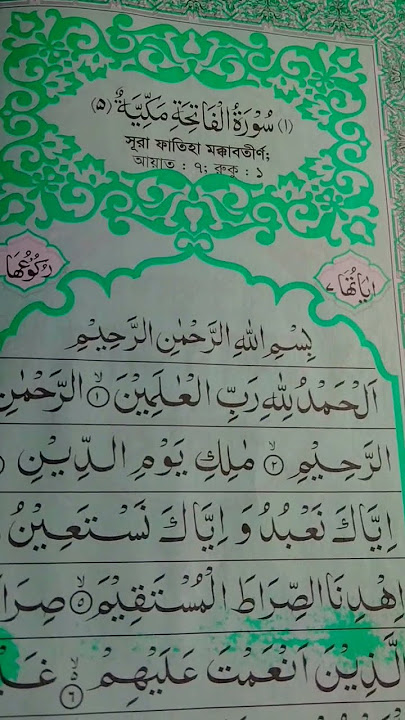 (١) سُوْرَةُ الْفَاتِحَةِ مَكِّيَّةٌ (٥)
সূরা ফাতিহা মক্কাবতীর্ণ;
আয়াত : ৭; রুকু : ১
اٰيَاتُهَا ٧
رُكُوْعُهَا
بِسْمِ اللّٰهِ الرَّحْمٰنِ الرَّحِيْمِ
اَلْحَمْدُ لِلّٰهِ رَبِّ الْعٰلَمِيْنَ ۙ﴿١﴾ الرَّحْمٰنِ
الرَّحِيْمِ ۙ﴿٢﴾ مٰلِكِ يَوْمِ الدِّيْنِ
اِيَّاكَ نَعْبُدُ وَ اِيَّاكَ نَسْتَعِيْنُ
اِهْدِنَا الصِّرَاطَ الْمُسْتَقِيْمَ ۙ﴿٥﴾
الَّذِيْنَ اَنْعَمْتَ عَلَيْهِمْ ۙ﴿٦﴾